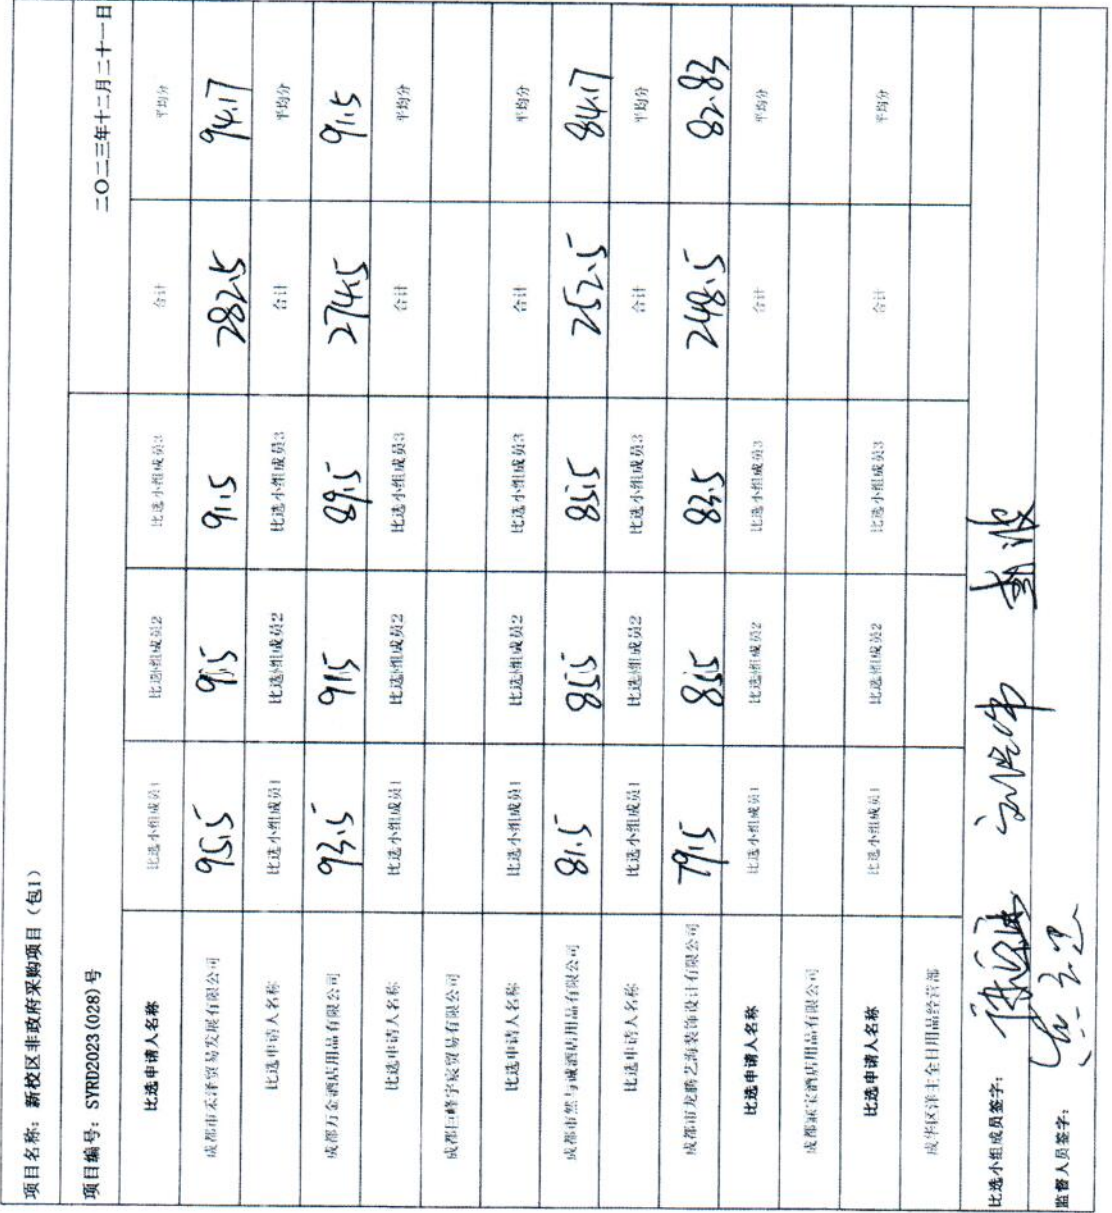 项目名称：新校区非政府采购项目（包1）
项目编号：SYRD2023(028)号 二〇二三年十二月二十一日
比选申请人名称 比选小组成员1 比选小组成员2 比选小组成员3 合计 平均分
成都市禾泽贸易发展有限公司 95.5 95.5 91.5 282.5 94.17
比选申请人名称 比选小组成员1 比选小组成员2 比选小组成员3 合计 平均分
成都万金酒店用品有限公司 93.5 91.5 89.5 274.5 91.5
比选申请人名称 比选小组成员1 比选小组成员2 比选小组成员3 合计 平均分
成都巨峰宇宸贸易有限公司
比选申请人名称 比选小组成员1 比选小组成员2 比选小组成员3 合计 平均分
成都市然与诚酒店用品有限公司 81.5 85.5 85.5 252.5 84.17
比选申请人名称 比选小组成员1 比选小组成员2 比选小组成员3 合计 平均分
成都市龙腾艺海装饰设计有限公司 79.5 85.5 83.5 248.5 82.83
比选申请人名称 比选小组成员1 比选小组成员2 比选小组成员3 合计 平均分
成都颍宝酒店用品有限公司
比选申请人名称 比选小组成员1 比选小组成员2 比选小组成员3 合计 平均分
成华区洋主全日用品经营部
比选小组成员签字：
监督人员签字：